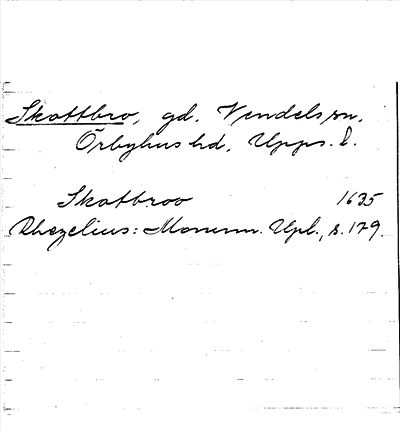 Skattbro, gd. Vendels sn,
Örbyhus hd, Upps. l.
Skatbroo 1635
Rhezelius: Monum. Upl., s. 179.